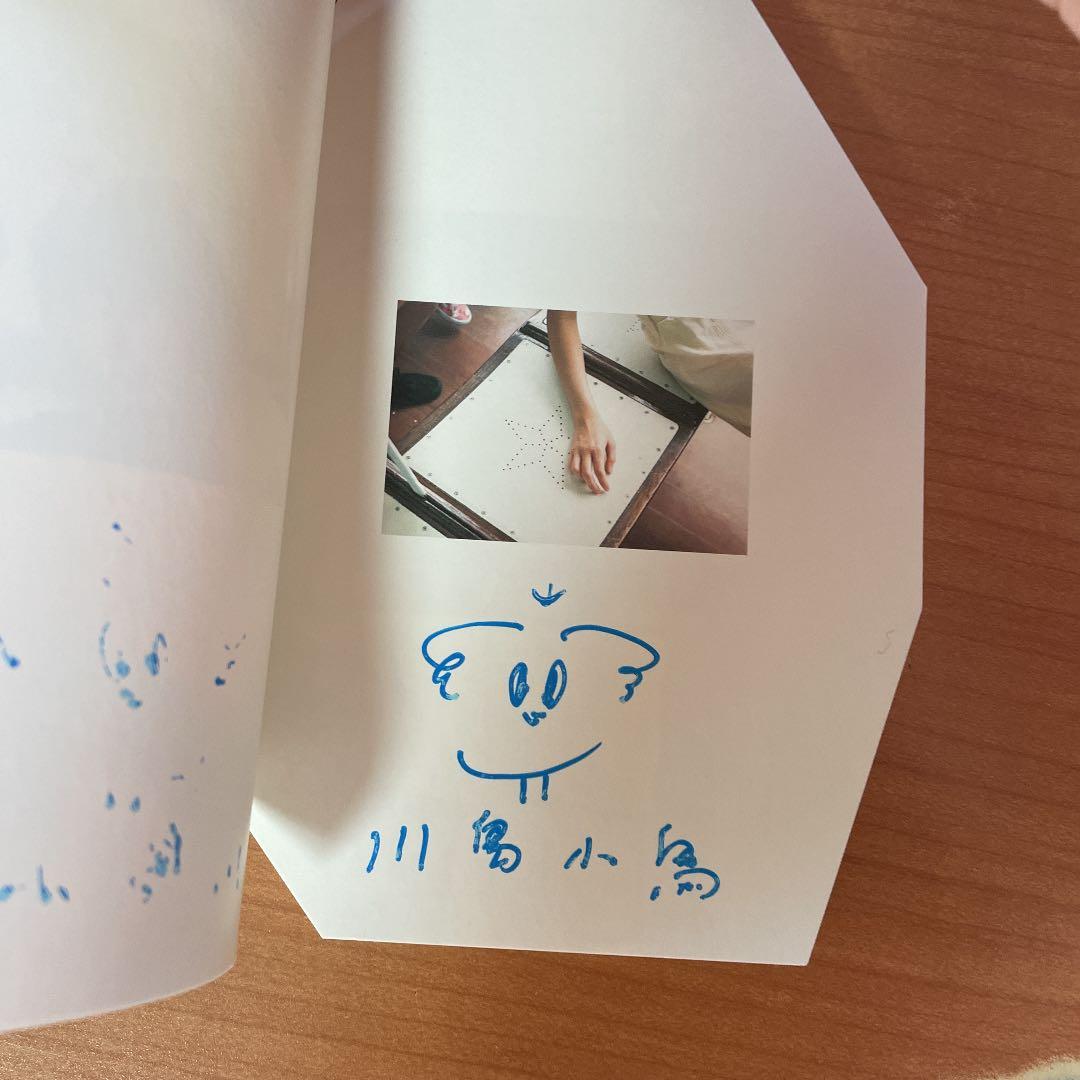 川島小鳥